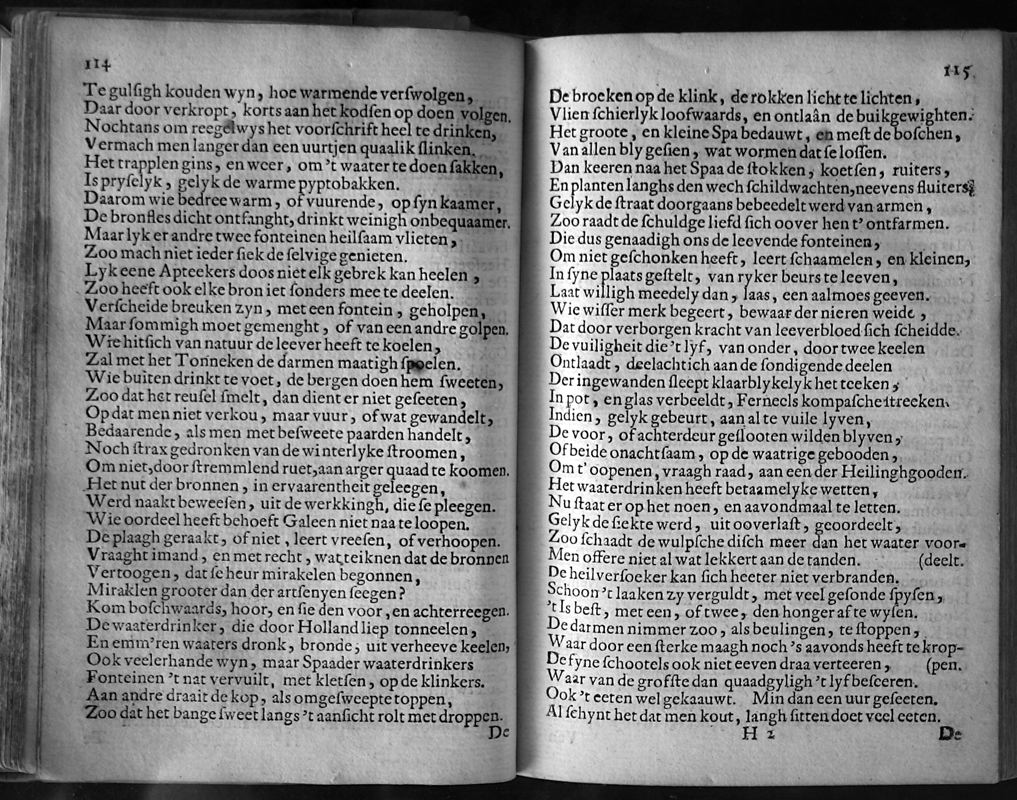 114
Te gulſigh kouden wyn, hoe warmende verſwolgen,
Daar door verkropt, korts aan het kodſen op doen volgen.
Nochtans om reegelwys het voorſchrift heel te drinken,
Vermach men langer dan een uurtjen quaalik ſlinken.
Het trapplen gins, en weer, om 't waater te doen ſakken,
Is pryſelyk, gelyk de warme pyptobakken.
Daarom wie bedree warm, of vuurende, op ſyn kaamer,
De bronfles dicht ontfanght, drinkt weinigh onbequaamer.
Maar lyk er andre twee fonteinen heilſaam vlieten,
Zoo mach niet ieder ſiek de ſelvige genieten.
Lyk eene Apteekers doos niet elk gebrek kan heelen,
Zoo heeft ook elke bron iet ſonders mee te deelen.
Verſcheide breuken zyn, met een fontein, geholpen,
Maar ſommigh moet gemenght, of van een andre golpen.
Wie hitſich van natuur de leever heeft te koelen,
Zal met het Tonneken de darmen maatigh ſpoelen.
Wie buiten drinkt te voet, de bergen doen hem ſweeten,
Zoo dat het reuſel ſmelt, dan dient er niet geſeeten,
Op dat men niet verkou, maar vuur, of wat gewandelt,
Bedaarende, als men met beſweete paarden handelt,
Noch ſtrax gedronken van de winterlyke ſtroomen,
Om niet, door ſtremmlend ruet, aan arger quaad te koomen.
Het nut der bronnen, in ervaarentheit geleegen,
Werd naakt beweeſen, uit de werkkingh, die ſe pleegen.
Wie oordeel heeft behoeft Galeen niet naa te loopen.
De plaagh geraakt, of niet, leert vreeſen, of verhoopen.
Vraaght imand, en met recht, wat teiknen dat de bronnen
Vertoogen, dat ſe heur mirakelen begonnen,
Miraklen grooter dan der artſenyen ſeegen?
Kom boſchwaards, hoor, en ſie den voor, en achterreegen.
De waaterdrinker, die door Holland liep tonneelen,
En emm'ren waaters dronk, bronde, uit verheeve keelen,
Ook veelerhande wyn, maar Spaader waaterdrinkers
Fonteinen 't nat vervuilt, met kletſen, op de klinkers.
Aan andre draait de kop, als omgeſweepte toppen,
Zoo dat het bange ſweet langs 't aanſicht rolt met droppen.
De
115
De broeken op de klink, de rokken licht te lichten,
Vlien ſchierlyk loofwaards, en ontlaân de buikgewighten.
Het groote, en kleine Spa bedauwt, en meſt de boſchen,
Van allen bly geſien, wat wormen dat ſe loſſen.
Dan keeren naa het Spaa de ſtokken, koetſen, ruiters,
En planten langhs den wech ſchildwachten, neevens fluiters;
Gelyk de ſtraat doorgaans bebeedelt werd van armen,
Zoo raadt de ſchuldge liefd ſich oover hen t' ontfarmen.
Die dus genaadigh ons de leevende fonteinen,
Om niet geſchonken heeft, leert ſchaamelen, en kleinen,
In ſyne plaats geſtelt, van ryker beurs te leeven,
Laat willigh meedely dan, laas, een aalmoes geeven.
Wie wiſſer merk begeert, bewaar der nieren weide,
Dat door verborgen kracht van leeverbloed ſich ſcheidde.
De vuiligheit die 't lyf, van onder, door twee keelen
Ontlaadt, deelachtich aan de ſondigende deelen
Der ingewanden ſleept klaarblykelyk het teeken,
In pot, en glas verbeeldt, Ferneels kompaſcheſtreeken.
Indien, gelyk gebeurt, aan al te vuile lyven,
De voor, of achterdeur geſlooten wilden blyven,
Of beide onachtſaam, op de waatrige gebooden,
Om t' oopenen, vraagh raad, aan een der Heilinghgooden.
Het waaterdrinken heeft betaamelyke wetten,
Nu ſtaat er op het noen, en aavondmaal te letten.
Gelyk de ſiekte werd, uit ooverlaſt, geoordeelt,
Zoo ſchaadt de wulpſche diſch meer dan het waater voor-
Men offere niet al wat lekkert aan de tanden. (deelt.
De heilverſoeker kan ſich heeter niet verbranden.
Schoon 't laaken zy verguldt, met veel geſonde ſpyſen,
't Is beſt, met een, of twee, den honger af te wyſen.
De darmen nimmer zoo, als beulingen, te ſtoppen,
Waar door een ſterke maagh noch 's aavonds heeft te krop-
De fyne ſchootels ook niet eeven draa verteeren, (pen.
Waar van de groſſte dan quaadgyligh 't lyf beſceren.
Ook 't eeten wel gekaauwt. Min dan een uur geſeeten.
Al ſchynt het dat men kout, langh ſitten doet veel eeten.
H 2 De